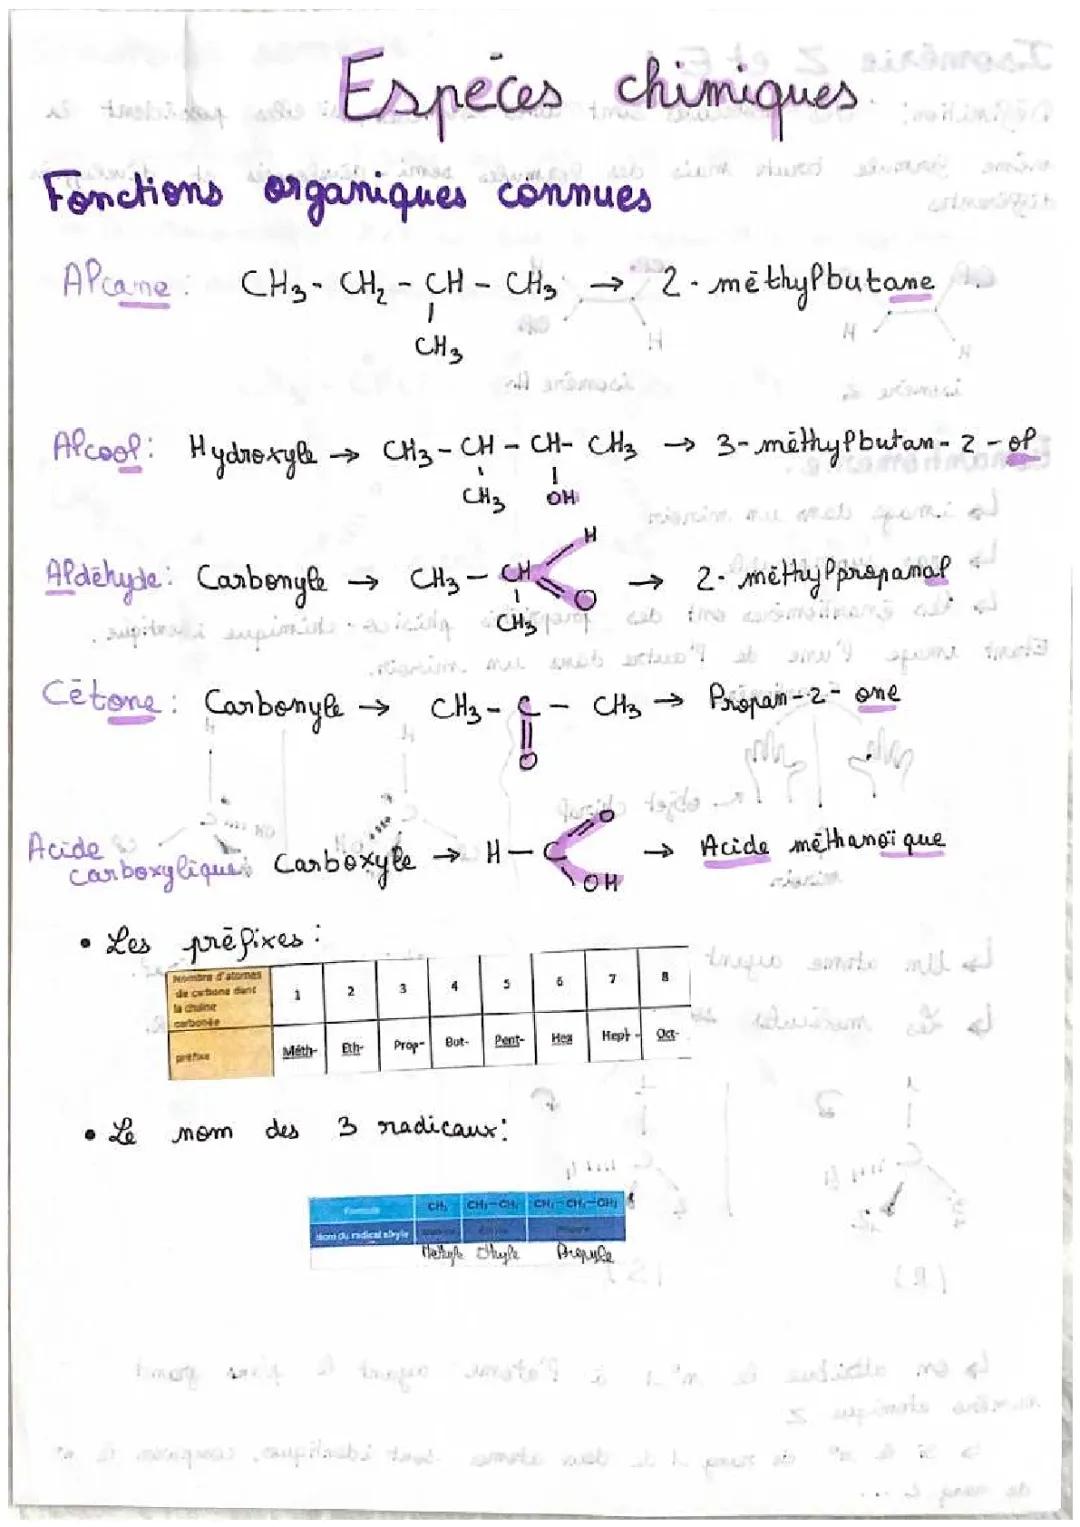 Espèces chimiques
Fonctions organiques connues
Alcane : CH3 - CH2 - CH - CH3 → 2-méthylbutane
CH3
Alcool : Hydroxyle → CH3 - CH - CH - CH3 → 3-méthylbutan-2-ol
CH3 OH
H
Aldéhyde : Carbonyle → CH3 - CH → 2-méthylpropanal
O
CH3
Cétone : Carbonyle → CH3 - C - CH3 → Propan-2-one
O
O
Acide carboxylique : Carboxyle → H - C → Acide méthanoïque
OH
• Les préfixes :
Nombre d'atomes
de carbone dans
la chaîne
carbonée
1 2 3 4 5 6 7 8
préfixe Méth- Eth- Prop- But- Pent- Hex Hept- Oct-
• Le nom des 3 radicaux :
Formule CH3 CH2-CH3 CH2-CH2-CH3
Nom du radical alkyle
Méthyle Ethyle Propyle